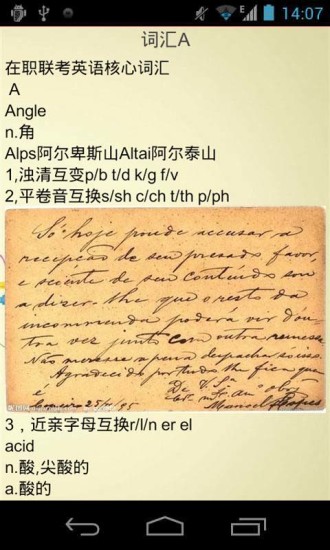 14:07
词汇A
在职联考英语核心词汇
A
Angle
n.角
Alps阿尔卑斯山Altai阿尔泰山
1,浊清互变p/b t/d k/g f/v
2,平卷音互换s/sh c/ch t/th p/ph
Só hoje poude accusar a
recepção de seu presado favor,
e sciente de seu contiúdo sou
a dizer-lhe que o resto da
incommenda poderá vir d'ou-
tra vez junto com outra remessa
Não merece a pena despachar so isso.
Agradecido por tudo lhe fica quem
é
De V. Sa
Manoel
3，近亲字母互换r/l/n er el
acid
n.酸,尖酸的
a.酸的